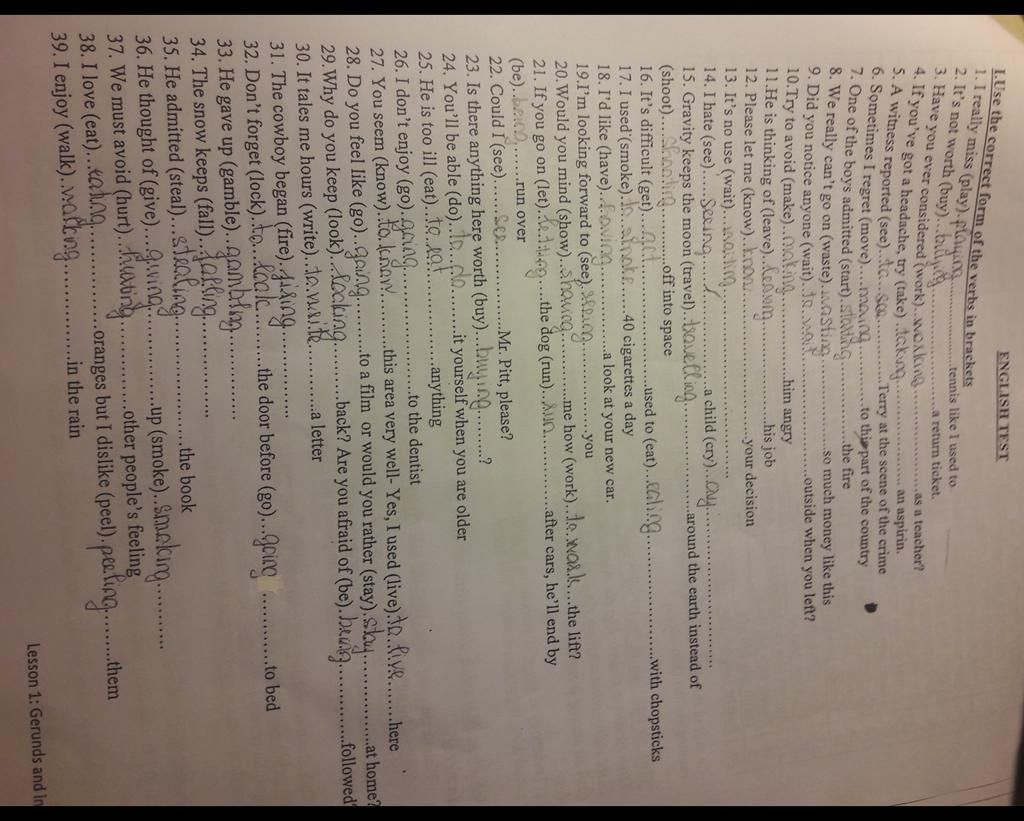 ENGLISH TEST
I.Use the correct form of the verbs in brackets
1. I really miss (play)..playing..................tennis like I used to
2. It's not worth (buy)...buying...............a return ticket.
3. Have you ever considered (work)...working..................as a teacher?
4. If you've got a headache, try (take)..taking.................. an aspirin.
5. A witness reported (see)..to...see...........Terry at the scene of the crime
6. Sometimes I regret (move)....moving.............to this part of the country
7. One of the boys admitted (start)..starting...............the fire
8. We really can't go on (waste)..wasting..................so much money like this
9. Did you notice anyone (wait)..to wait..................outside when you left?
10.Try to avoid (make)...making....................him angry
11.He is thinking of (leave)..leaving.....................his job
12. Please let me (know)..know.....................your decision
13. It's no use (wait)....waiting.....................
14. I hate (see)......seeing............a child (cry)..cry...........................
15. Gravity keeps the moon (travel)..travelling..................around the earth instead of
(shoot)....shooting..............off into space
16. It's difficult (get)....get..................used to (eat)....eating........................with chopsticks
17. I used (smoke)..to smoke.......40 cigarettes a day
18. I'd like (have)..having..................a look at your new car.
19.I'm looking forward to (see)..seeing..................you
20.Would you mind (show)...showing.............me how (work)..to.work....the lift?
21. If you go on (let)..letting.....the dog (run)....run...............after cars, he'll end by
(be)...being.......run over
22. Could I (see)......see...............Mr. Pitt, please?
23. Is there anything here worth (buy)..buying..........?
24. You'll be able (do)..to...do...........it yourself when you are older
25. He is too ill (eat)...to eat..................anything
26. I don't enjoy (go)..going.....................to the dentist
27. You seem (know)..to know..................this area very well- Yes, I used (live)..to..live......here
28. Do you feel like (go)..going............to a film or would you rather (stay)..stay...............at home?
29. Why do you keep (look)...looking............back? Are you afraid of (be)..being...............followed?
30. It tales me hours (write)...to.write............a letter
31. The cowboy began (fire)..firing..................
32. Don't forget (lock)..to...look.........the door before (go)....going............to bed
33. He gave up (gamble)..gambling..................
34. The snow keeps (fall)...falling..................
35. He admitted (steal)....stealing.....................the book
36. He thought of (give)....giving...............up (smoke)...smoking............
37. We must avoid (hurt)..hurting...............other people's feeling
38. I love (eat)....eating...............oranges but I dislike (peel)..peeling.........them
39. I enjoy (walk)...walking..................in the rain
Lesson 1: Gerunds and in